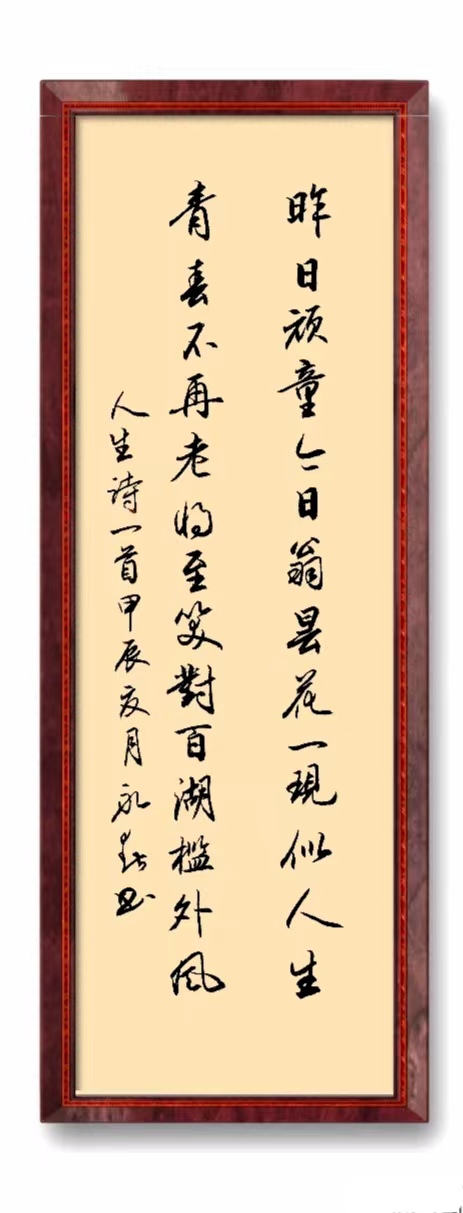 昨日顽童今日翁昙花一現似人生
青春不再老将至笑對百湖槛外風
人生诗一首甲辰亥月永